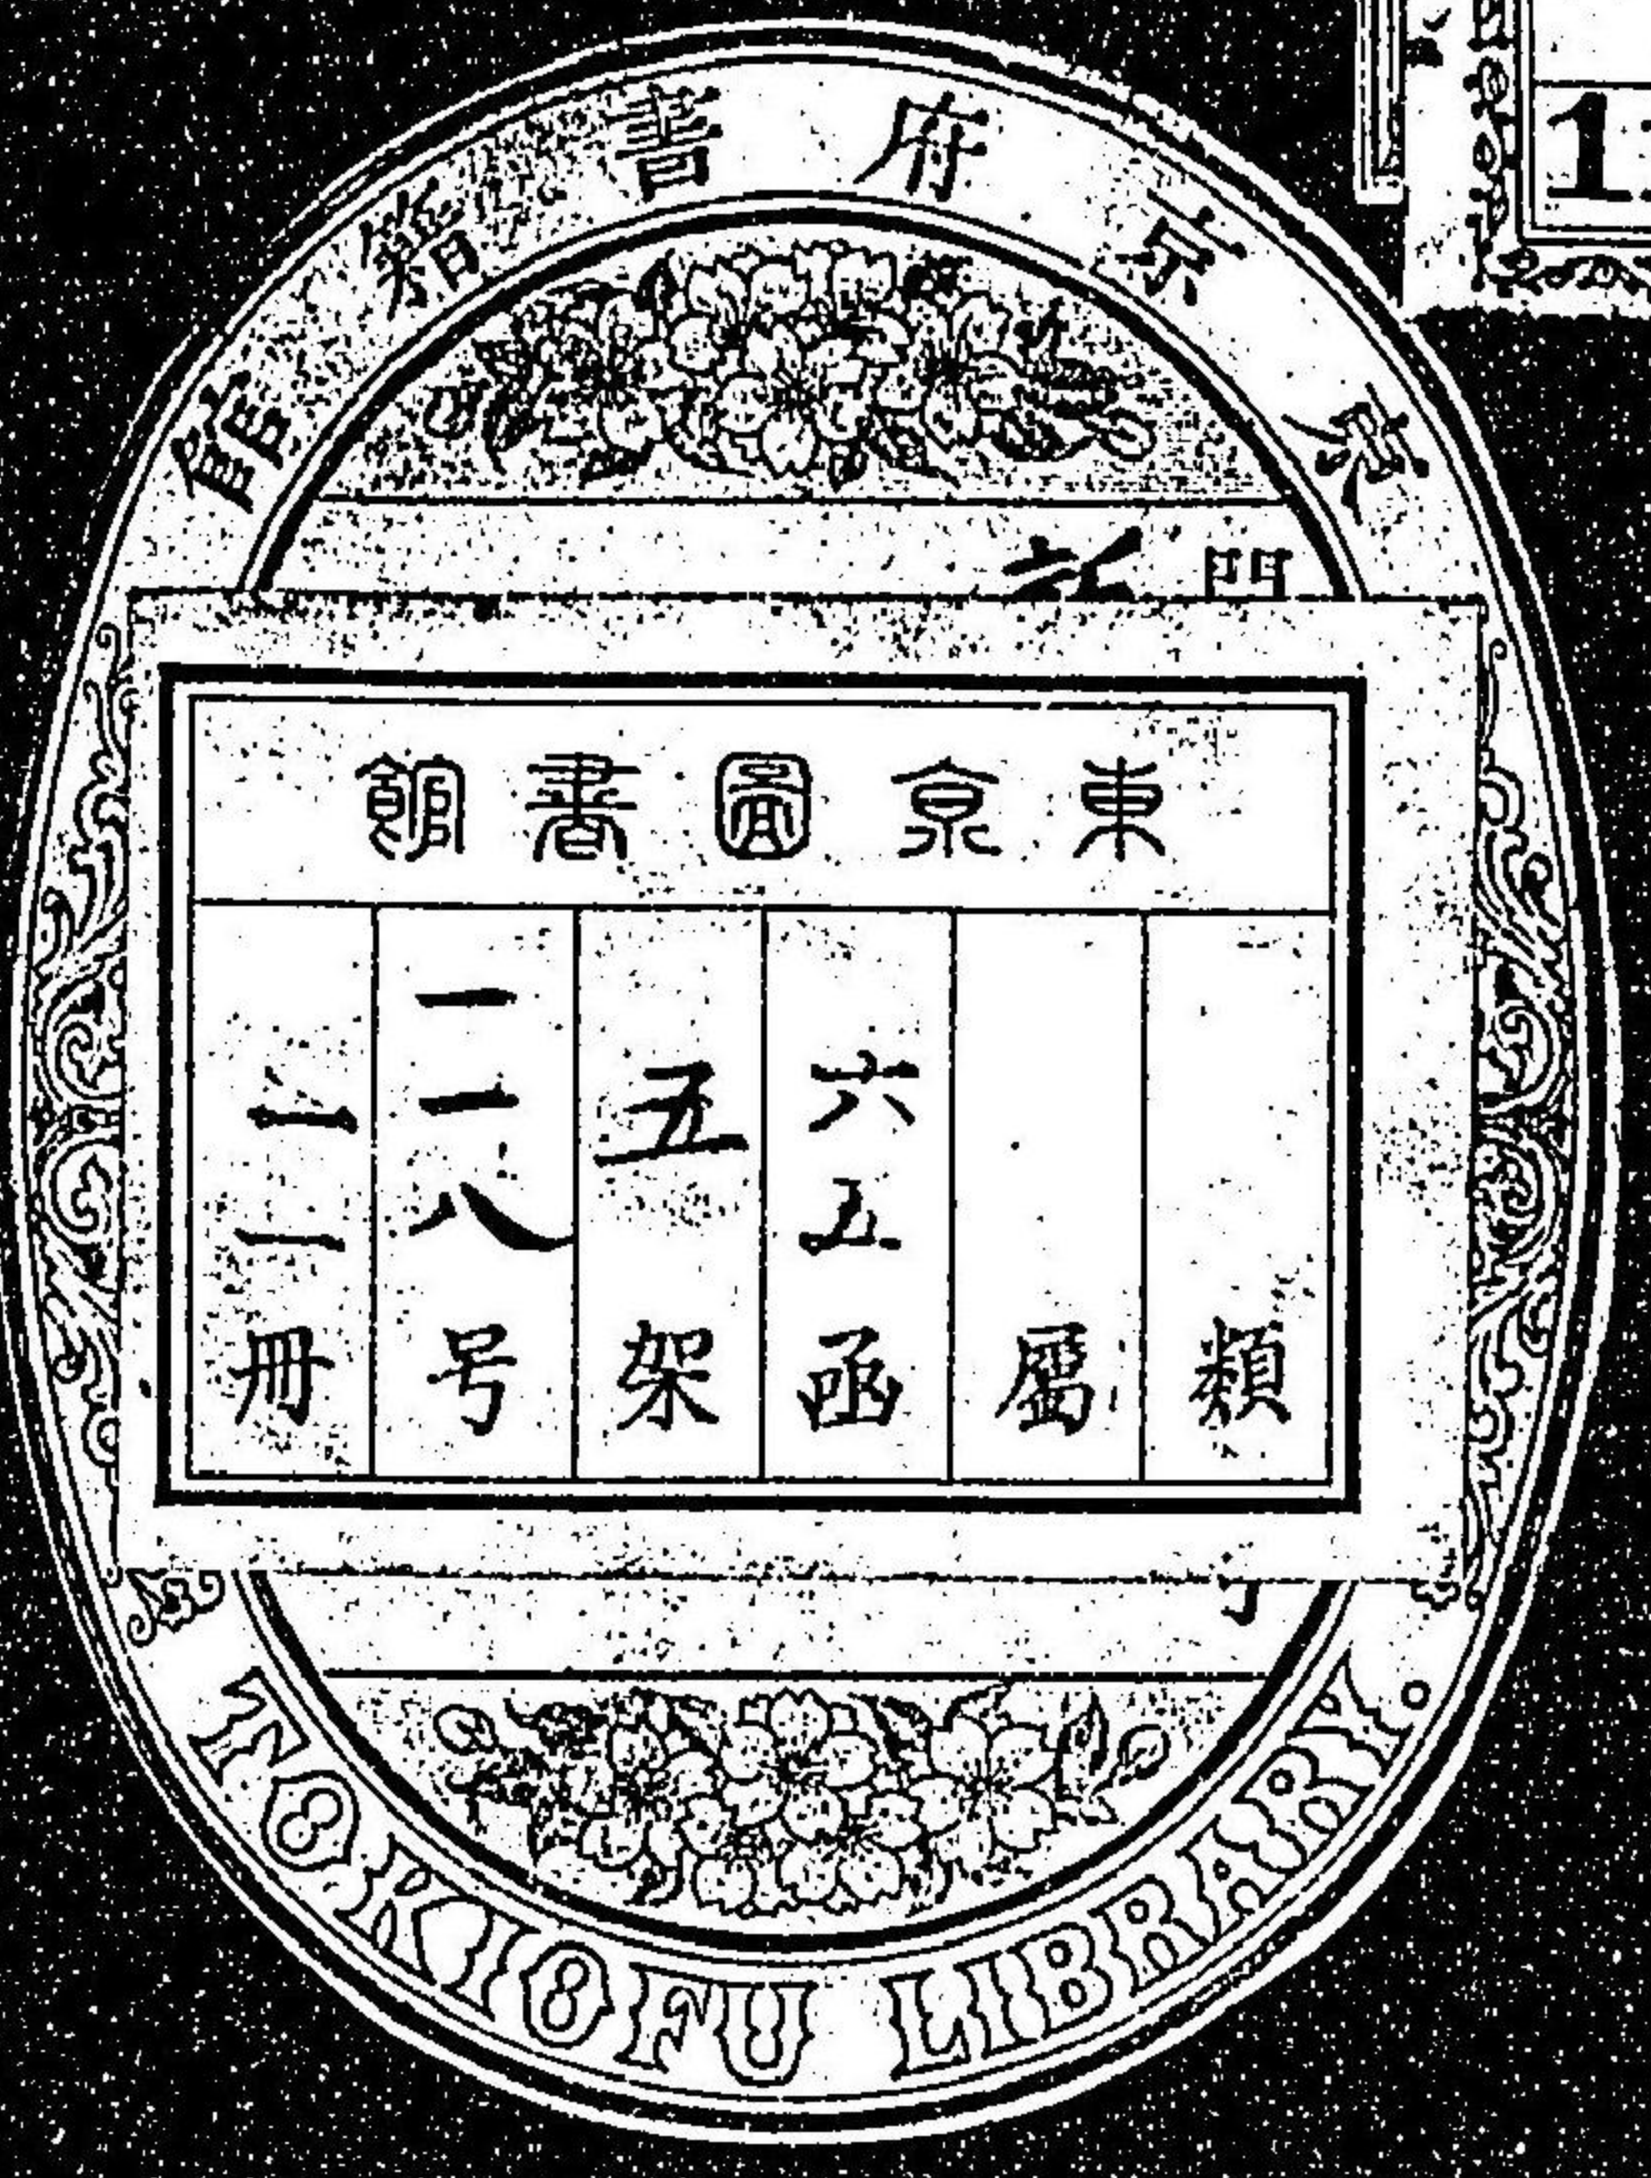 東京府書籍館
門
東京圖書館
類
屬
六五函
五架
一一八号
一一冊
TOKIOFU LIBRARY.
1